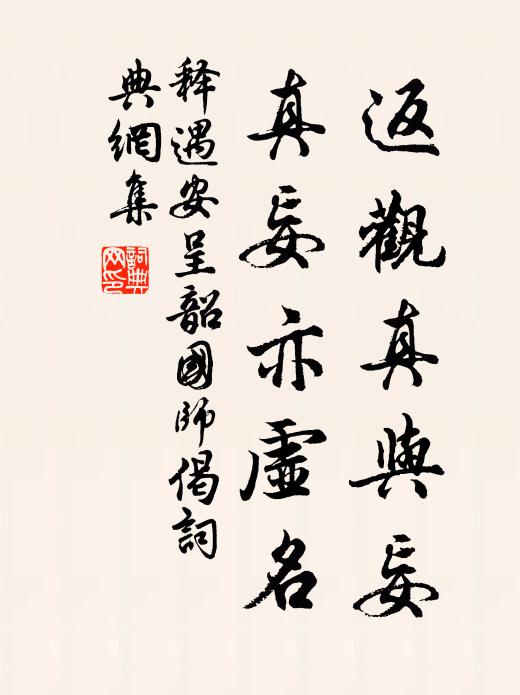 返觀真與妄
真妄亦虛名
释遇安呈韶國師偈詞
典網集
詞典
网印